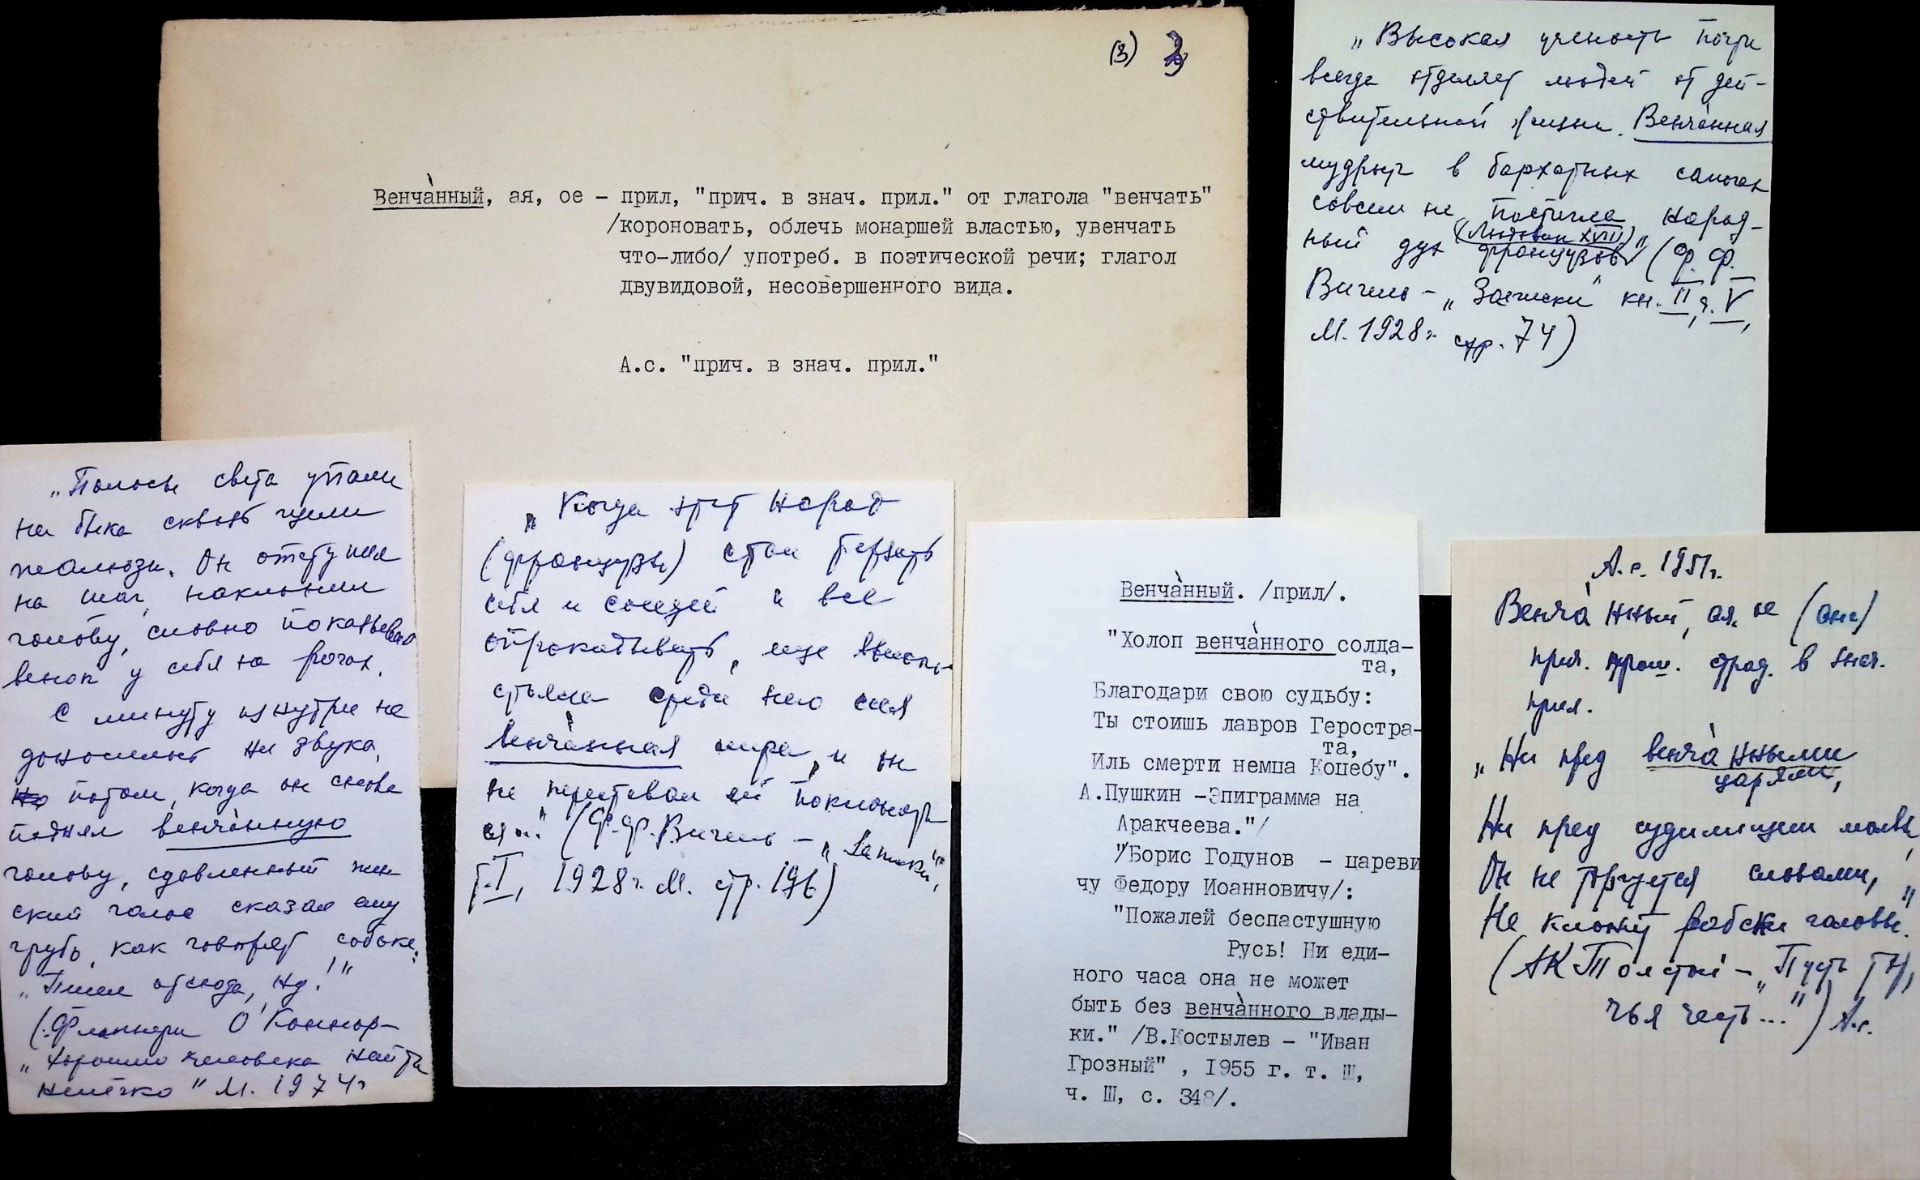 (3) 3
Венча̀нный, ая, ое – прил, "прич. в знач. прил." от глагола "венчать"
/короновать, облечь монаршей властью, увенчать
что-либо/ употреб. в поэтической речи; глагол
двувидовой, несовершенного вида.
А.с. "прич. в знач. прил."
„Высокая ученость почти
всегда отделяет людей от дей-
ствительной жизни. Венча̀нная
мудрость в бархатных сапогах
совсем не постигла народ-
(Людовик XVIII)
ный дух французов" (Ф. Ф.
Вигель – „Записки" кн. II, ч. V,
М. 1928г. стр. 74)
„Полосы света упали
на быка сквозь щели
жалюзи. Он отступил
на шаг, наклонил
голову, словно показывая
венок у себя на рогах.
С минуту изнутри не
доносилось ни звука,
потом, когда он снова
поднял венча̀нную
голову, сдавленный жен-
ский голос сказал ему
грубо, как говорят собаке:
„Пшел отсюда, ну!"
(Фланнери О'Коннор –
„Хорошего человека найти
нелегко" М. 1974г
„Когда этот народ
(французы) стал терзать
себя и соседей и все
опрокидывать, еще
среди него сия
венча̀нная мира, и он
не переставал ей поклонять
ся.." (Ф.Ф.Вигель – „Записки",
т.I, 1928г. М. стр. 196)
Венча̀нный. /прил/.
"Холоп венча̀нного солда-
та,
Благодари свою судьбу:
Ты стоишь лавров Геростра-
та,
Иль смерти немца Коцебу".
А.Пушкин -Эпиграмма на
Аракчеева."/
"/Борис Годунов - цареви
чу Федору Иоанновичу/:
"Пожалей беспастушную
Русь! Ни еди-
ного часа она не может
быть без венча̀нного влады-
ки." /В.Костылев - "Иван
Грозный" , 1955 г. т. Ш,
ч. Ш, с. 348/.
А.с. 1951г.
Венча̀нный, ая, ое (он)
прич. прош. страд. в знач.
прил.
„Ни пред венча̀нными
царями,
Ни пред судилищем молвы,
Он не торгуется словами,
Не клонит рабски головы."
(АК Толстой – „Пусть тот,
чья честь...") А.с.